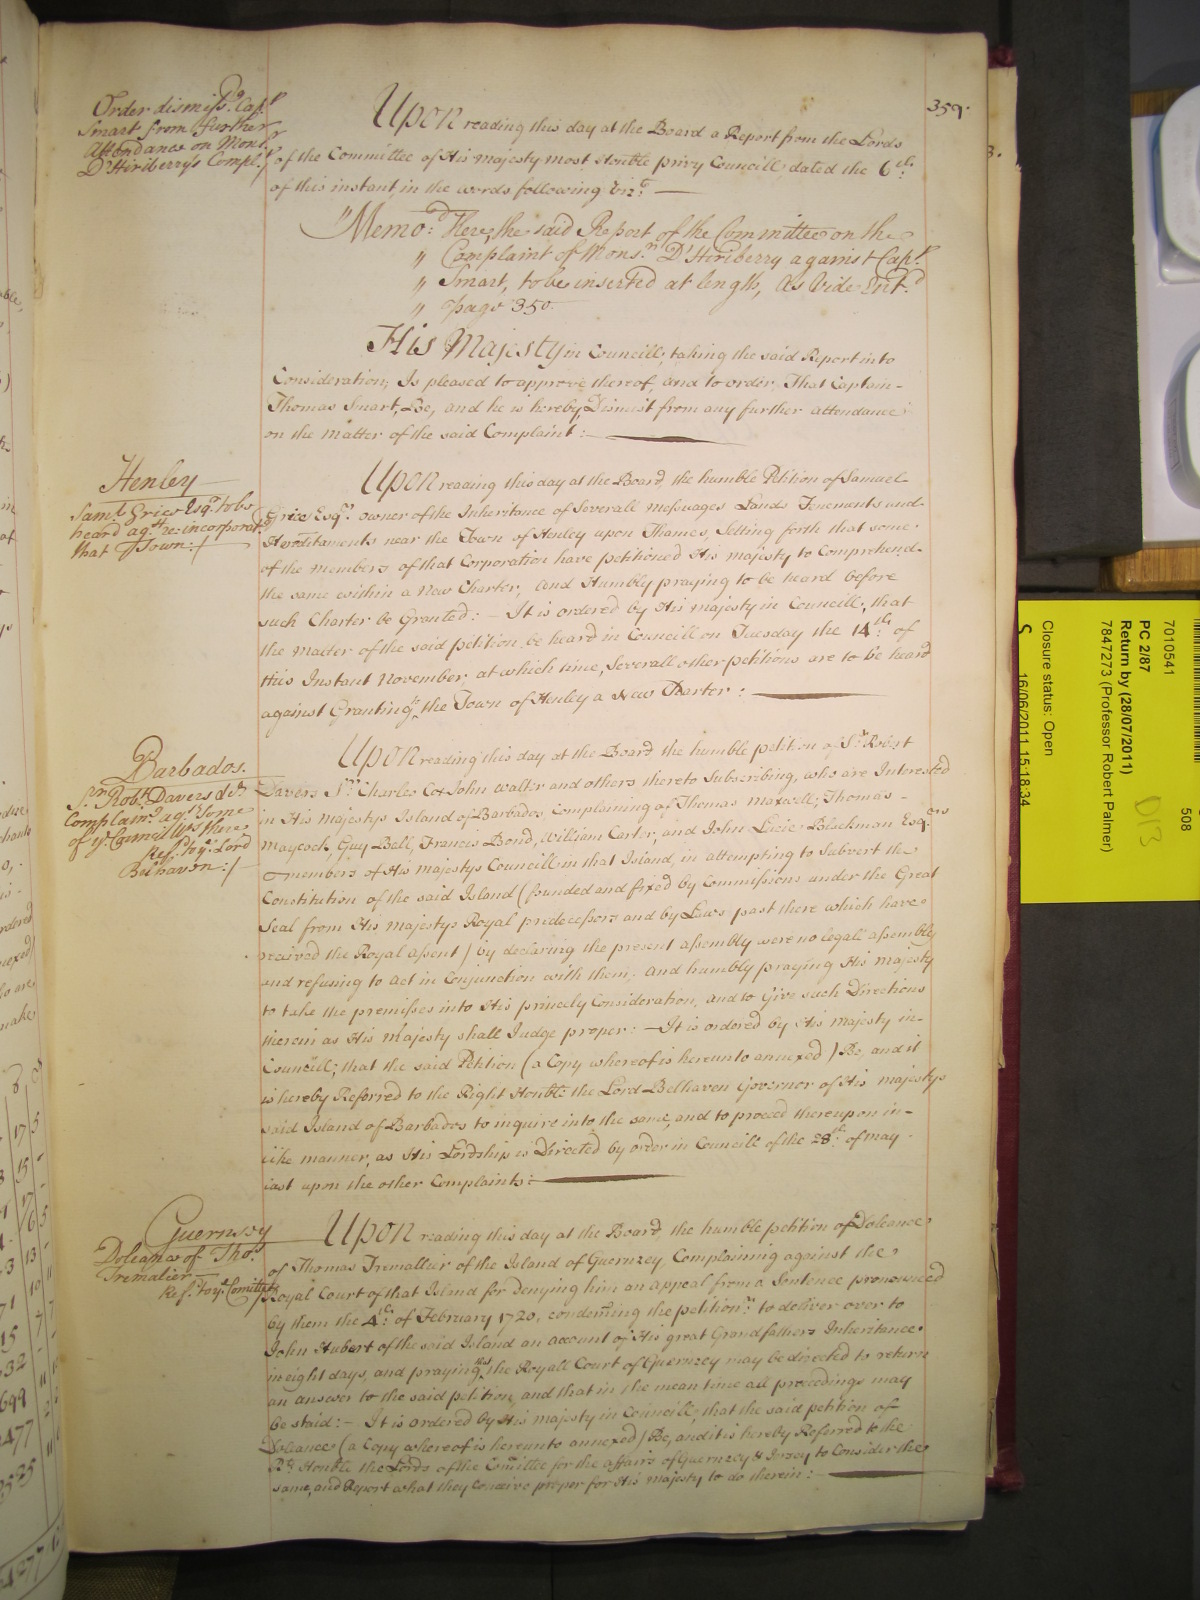 359.
Order dismiss.g Cap.t
Smart from further
Attendance on Mons.r
D'Hiriberry's Compl.t
Upon reading this day at the Board a Report from the Lords
of the Committee of His Majesty most Honble privy Councill, dated the 6.th
of this instant, in the words following viz.t
"Memo.d Here, the said Report of the Committee on the
" Complaint of Mons.r D'Hiriberry against Cap.t
" Smart, to be inserted at length, as vide Ent.d
" page 350.
His Majesty in Councill, taking the said Report into
Consideration, Is pleased to approve thereof, and to order, That Captain
Thomas Smart, Be, and he is hereby, Dismist from any further attendance
on the Matter of the said Complaint:
Henley
Sam.l Grice Esq.r to be
heard ag.st re-incorporat.g
that Town:/
Upon reading this day at the Board, the humble Petition of Samuel
Grice Esq.r owner of the Inheritance of Severall Messuages Lands Tenements and
Hereditaments near the Town of Henley upon Thames, Setting forth that some
of the Members of that Corporation have petitioned His Majesty to Comprehend
the same within a New Charter, and Humbly praying to be heard before
such Charter be Granted: - It is ordered by His Majesty in Councill, that
the Matter of the said petition be heard in Councill on Tuesday the 14.th of
this Instant November, at which time, Severall other petitions are to be heard
against Granting to the Town of Henley a New Charter:
Barbados.
S.r Rob.t Davers &c.a
Complain.t ag.st Some
of y.e Councill.rs there
Ref.d to y.e Lord
Belhaven:/
Upon reading this day at the Board, the humble petition of S.r Robert
Davers S.r Charles Cox John Walter and others thereto Subscribing, who are Interested
in His Majestys Island of Barbados, Complaining of Thomas Maxwell, Thomas
Maycock, Guy Bell, Francis Bond, William Carter, and John Lucie Blackman Esq.ers
members of His Majestys Councill in that Island, in attempting to Subvert the
Constitution of the said Island (founded and fixed by Commissions under the Great
Seal from His Majestys Royal predecessors and by Laws past there which have
received the Royal assent) by declaring the present assembly were no legall assembly
and refusing to act in Conjunction with them. And humbly praying His Majesty
to take the premisses into His princely Consideration, and to Give such Directions
therein as His Majesty shall Judge proper: - It is ordered by His Majesty in
Councill, that the said Petition (a Copy whereof is hereunto annexed) Be, and it
is hereby Referred to the Right Honble. the Lord Belhaven Governor of His Majestys
said Island of Barbados to inquire into the same, and to proceed thereupon in
like manner, as His Lordship is Directed by order in Councill of the 28.th of May
last upon the other Complaints:
Guernsey
Doleance of Tho.s
Tremalier
Ref.d to y.e Comittee
Upon reading this day at the Board the humble petition of Doleance
of Thomas Tremallier of the Island of Guernzey, Complaining against the
Royal Court of that Island for Denying him an appeal from a Sentence pronounced
by them the 4.th of February 1720, condemning the petition.r to deliver over to
John Hubert of the said Island an account of His great Grandfathers Inheritance
in eight days, and praying that the Royall Court of Guernzey may be directed to return
an answer to the said petition, and that in the mean time all proceedings may
be staid: - It is ordered by His Majesty in Councill, that the said petition of
Doleance (a Copy whereof is hereunto annexed) Be, and it is hereby Referred to the
R.t Honble the Lords of the Comittee for the affairs of Guernzey & Jersey to Consider the
same, and Report what they conceive proper for His Majesty to do therein:
7010541
508
PC 2/87
Return by (28/07/2011)
7847273 (Professor Robert Palmer)
D13
Closure status: Open
16/06/2011 15:18:34
S